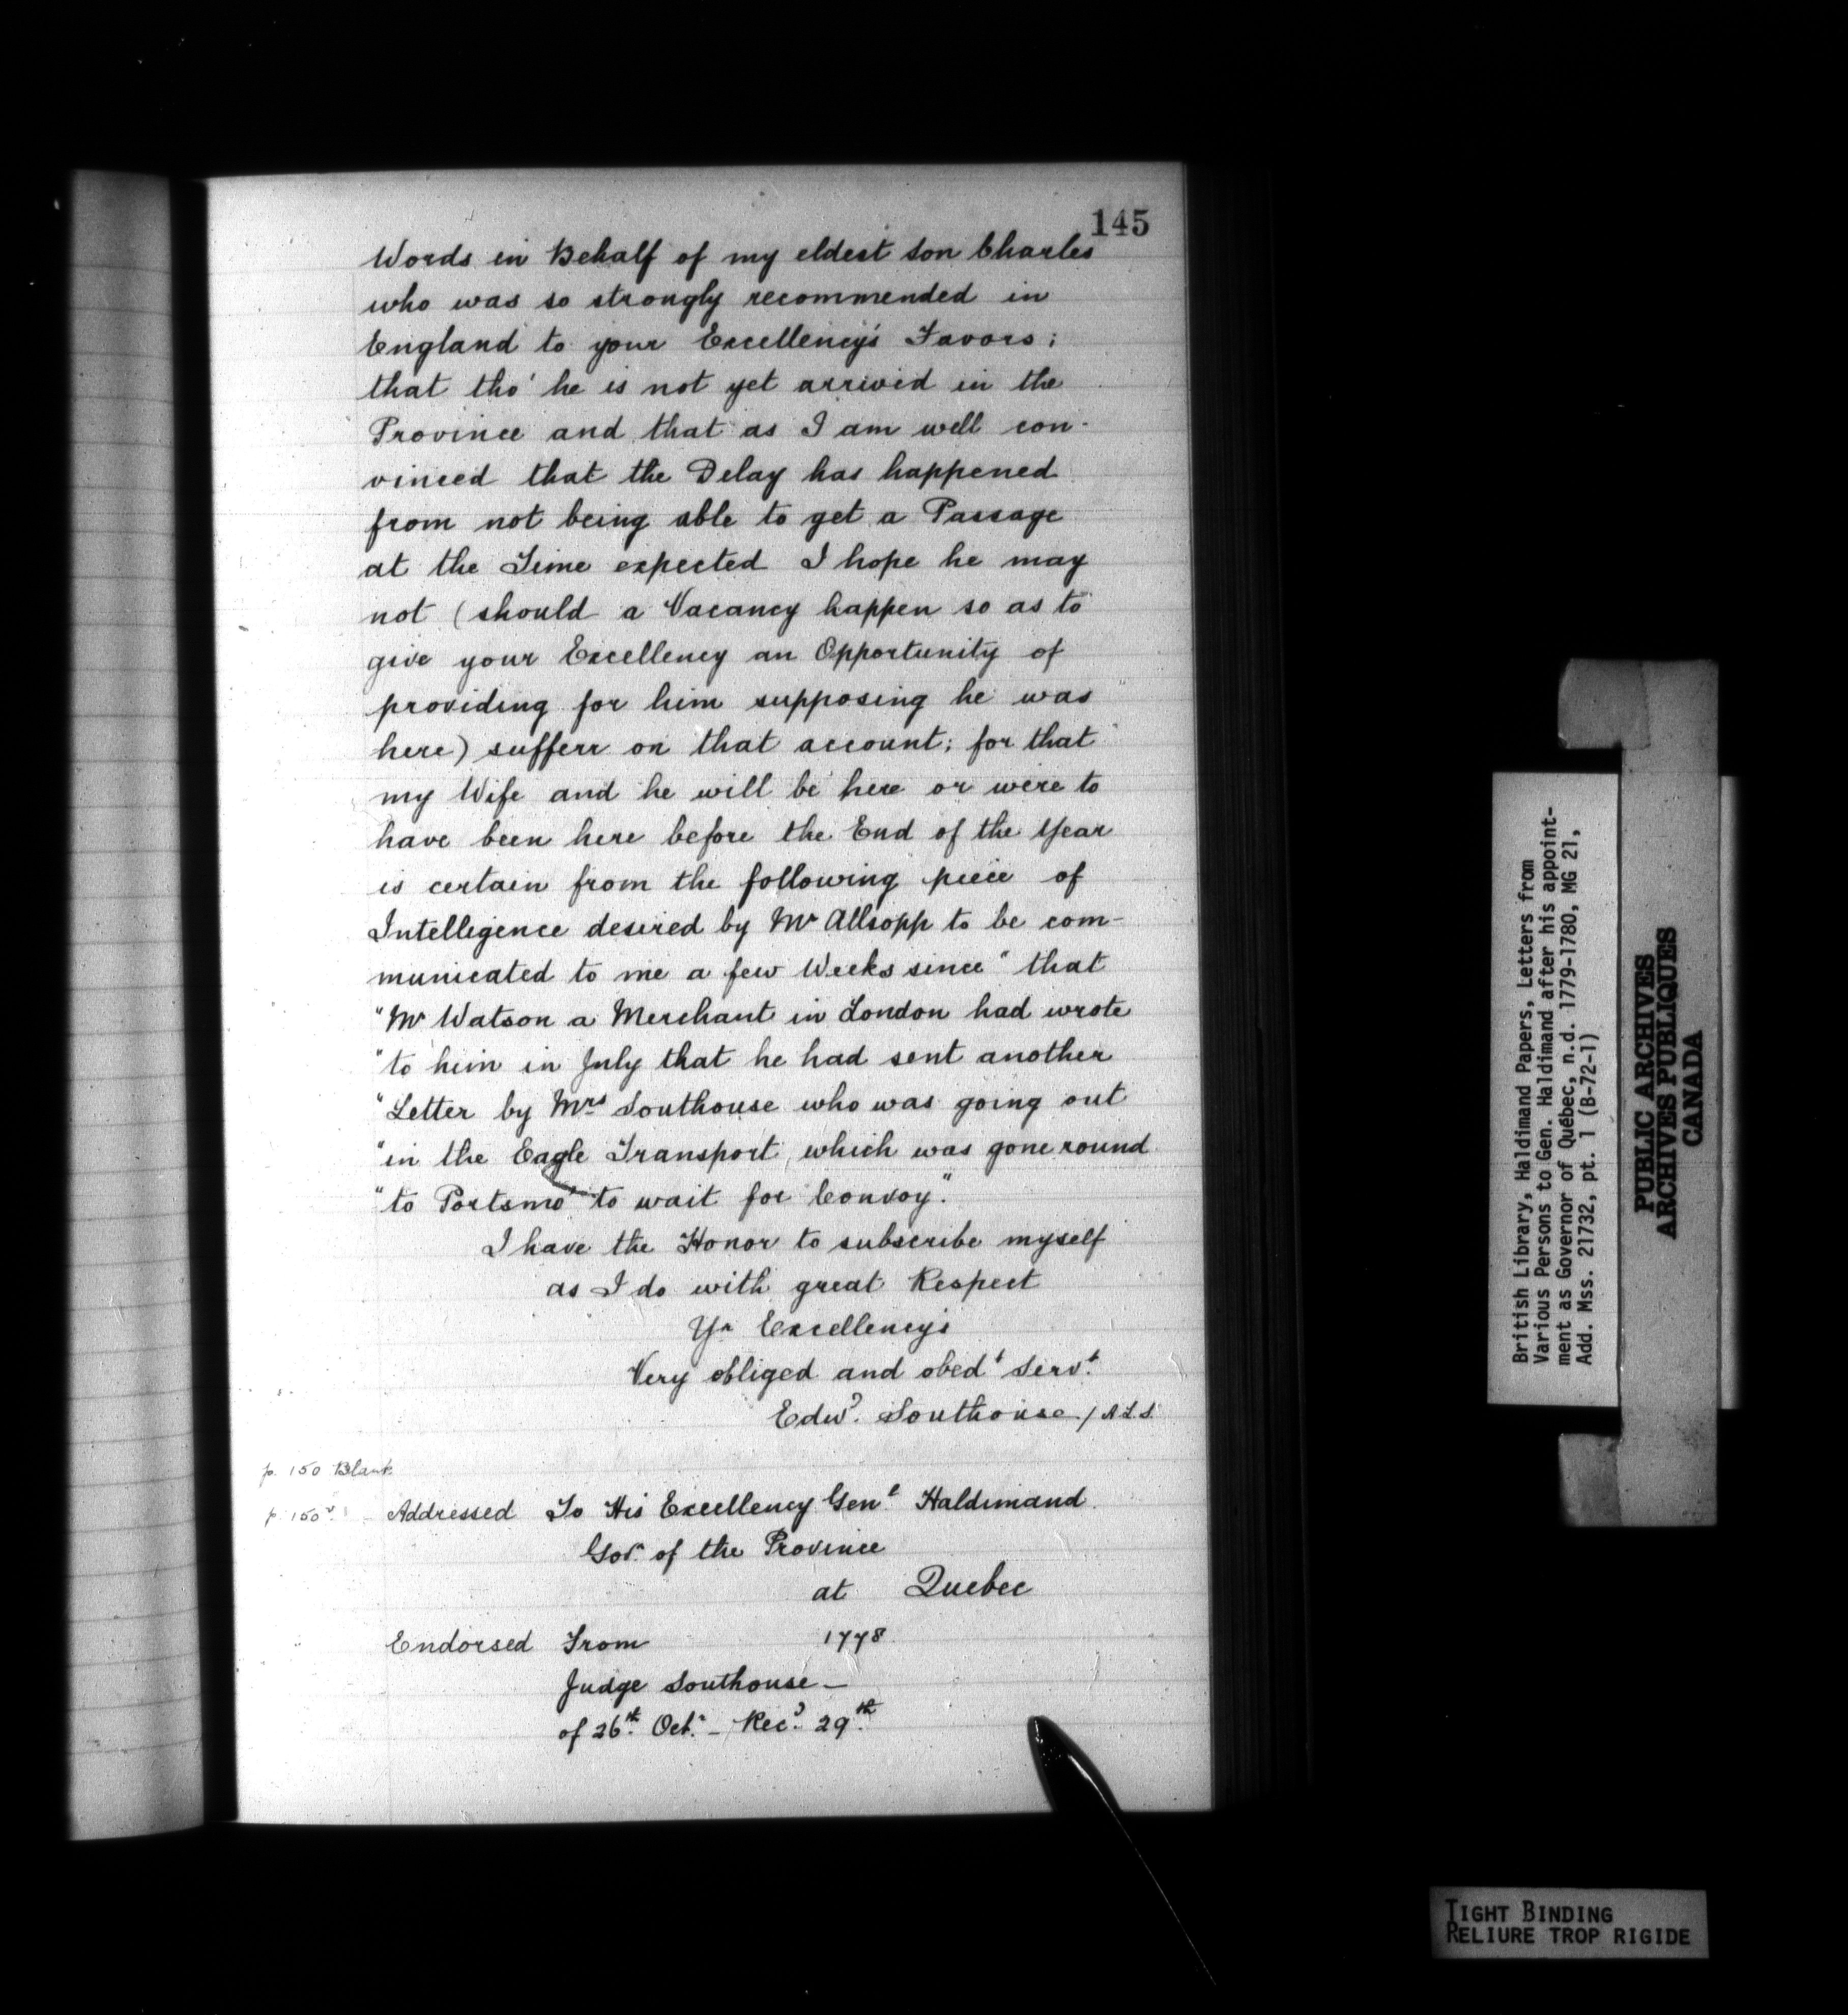 145
Words in Behalf of my eldest son Charles
who was so strongly recommended in
England to your Excellency's Favors;
that tho' he is not yet arrived in the
Province and that as I am well con-
vinced that the Delay has happened
from not being able to get a Passage
at the Time expected I hope he may
not (should a Vacancy happen so as to
give your Excellency an Opportunity of
providing for him supposing he was
here) sufferr on that account; for that
my Wife and he will be here or were to
have been here before the End of the Year
is certain from the following piece of
Intelligence desired by Mr Allsopp to be com-
municated to me a few Weeks since "that
"Mr Watson a Merchant in London had wrote
"to him in July that he had sent another
"Letter by Mrs Southouse who was going out
"in the Eagle Transport, which was gone round
"to Portsmo' to wait for Convoy."
I have the Honor to subscribe myself
as I do with great Respect
Yr Excellency's
Very obliged and obedt Servt.
Edwd. Southouse / A.L.S.
p. 150 Blank
p. 150v. Addressed To His Excellency Genl Haldimand
Govr. of the Province
at Quebec
Endorsed From 1778
Judge Southouse —
of 26th. Octr. — Recd. 29th.
British Library, Haldimand Papers, Letters from
Various Persons to Gen. Haldimand after his appoint-
ment as Governor of Québec, n.d. 1779-1780, MG 21,
Add. Mss. 21732, pt. 1 (B-72-1)
PUBLIC ARCHIVES
ARCHIVES PUBLIQUES
CANADA
TIGHT BINDING
RELIURE TROP RIGIDE